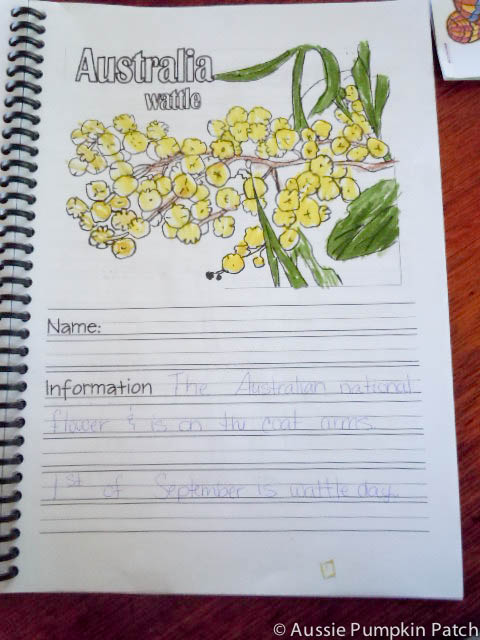 Australia
wattle
Name:
Information The Australian national
flower & is on the coat arms.
1st of September is wattle day.
© Aussie Pumpkin Patch